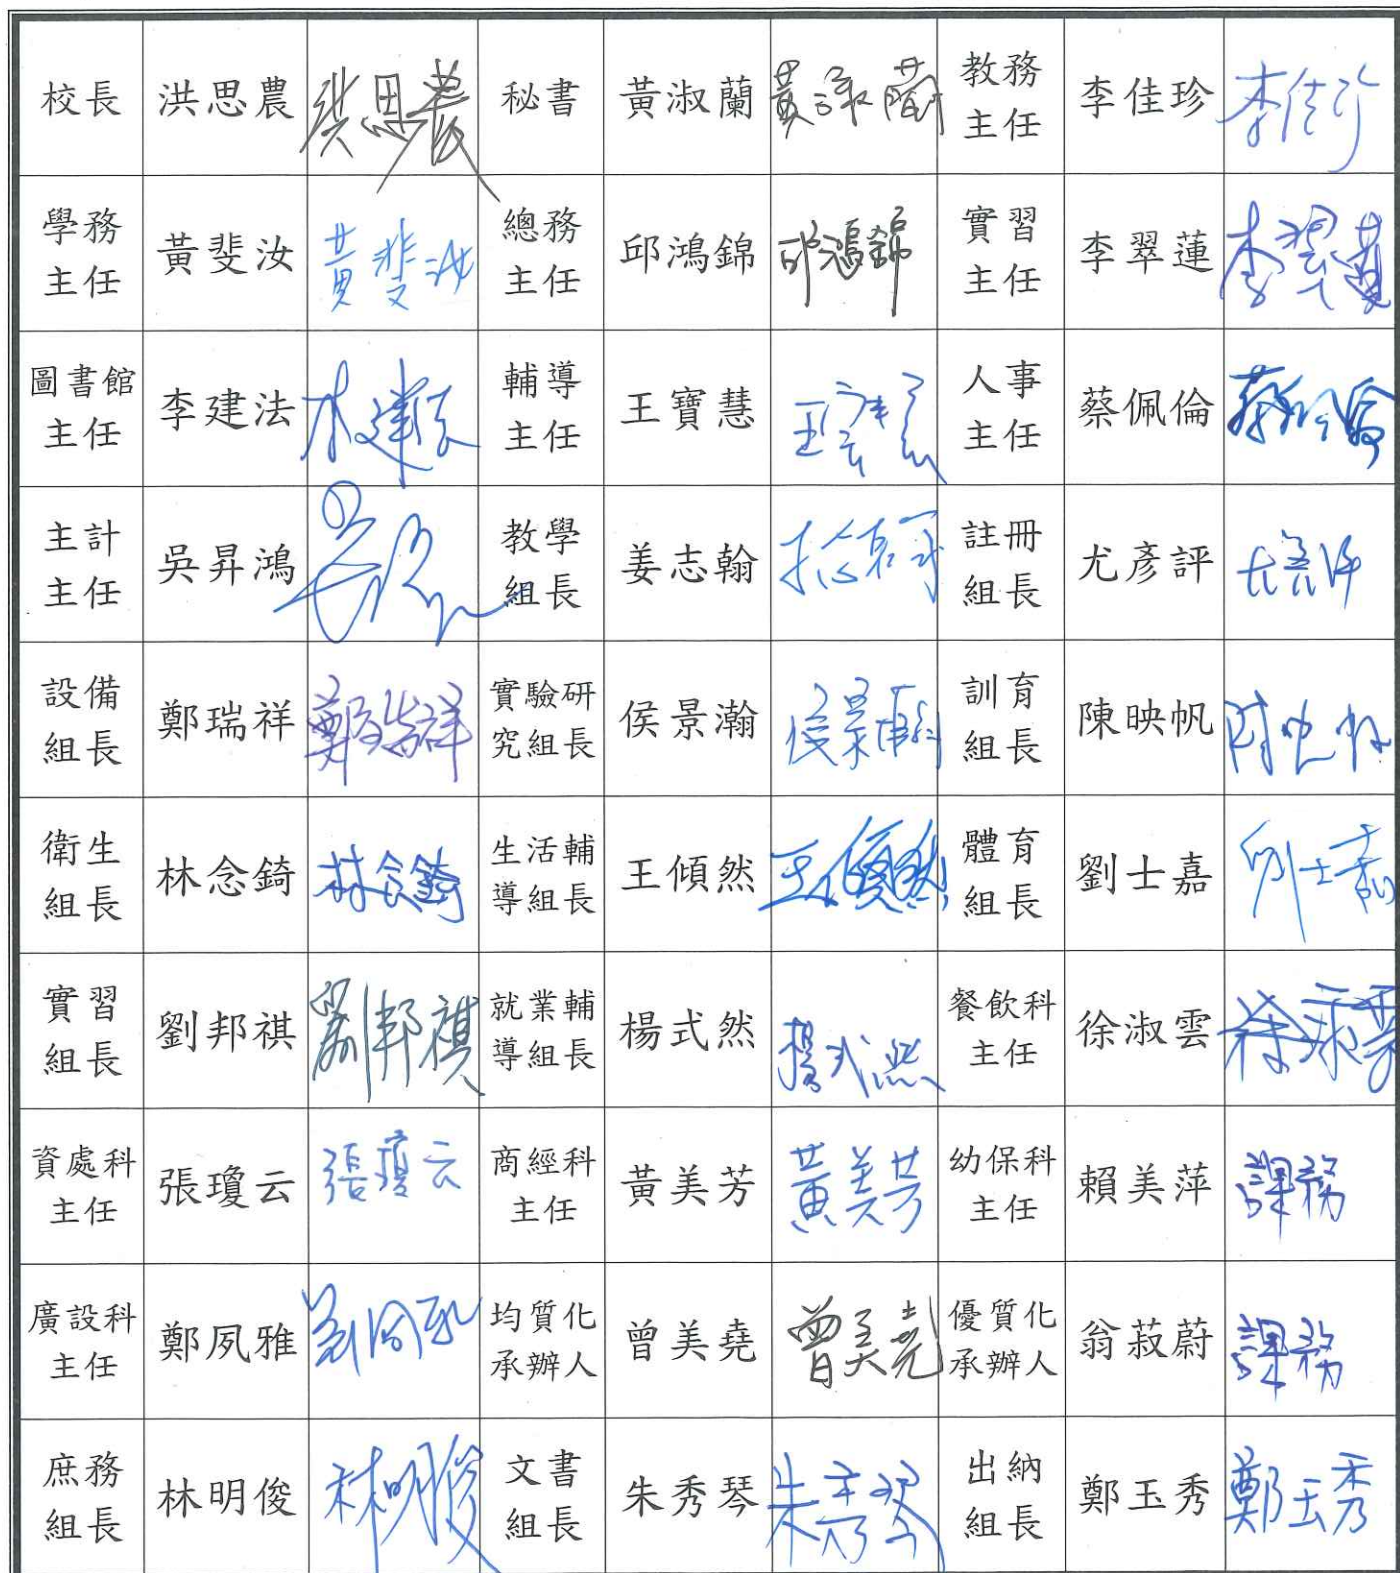 校長 洪思農 洪思農 秘書 黃淑蘭 黃淑蘭 教務主任 李佳珍 李佳珍
學務主任 黃斐汝 黃斐汝 總務主任 邱鴻錦 邱鴻錦 實習主任 李翠蓮 李翠蓮
圖書館主任 李建法 李建法 輔導主任 王寶慧 王寶慧 人事主任 蔡佩倫 蔡佩倫
主計主任 吳昇鴻 教學組長 姜志翰 註冊組長 尤彥評 尤彥評
設備組長 鄭瑞祥 鄭瑞祥 實驗研究組長 侯景瀚 侯景瀚 訓育組長 陳映帆 陳映帆
衛生組長 林念錡 林念錡 生活輔導組長 王傾然 王傾然 體育組長 劉士嘉 劉士嘉
實習組長 劉邦祺 劉邦祺 就業輔導組長 楊式然 楊式然 餐飲科主任 徐淑雲 徐淑雲
資處科主任 張瓊云 張瓊云 商經科主任 黃美芳 黃美芳 幼保科主任 賴美萍 課務
廣設科主任 鄭夙雅 均質化承辦人 曾美堯 曾美堯 優質化承辦人 翁菽蔚 課務
庶務組長 林明俊 林明俊 文書組長 朱秀琴 朱秀琴 出納組長 鄭玉秀 鄭玉秀